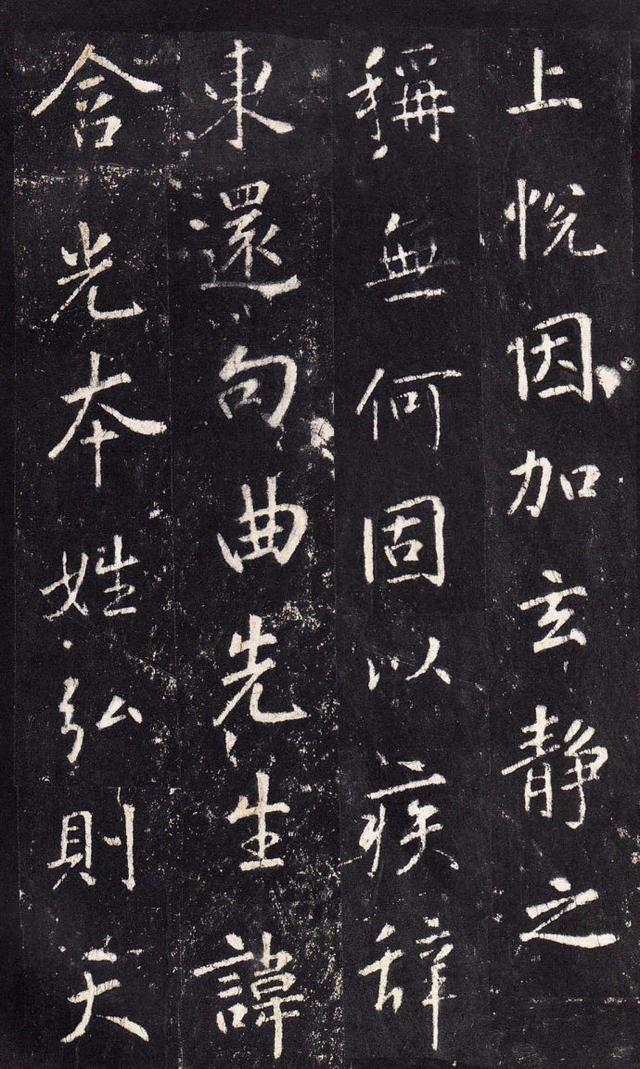 上悅因加玄靜之
稱無何固以疾辞
東還句曲先生諱
含光本姓弘則天